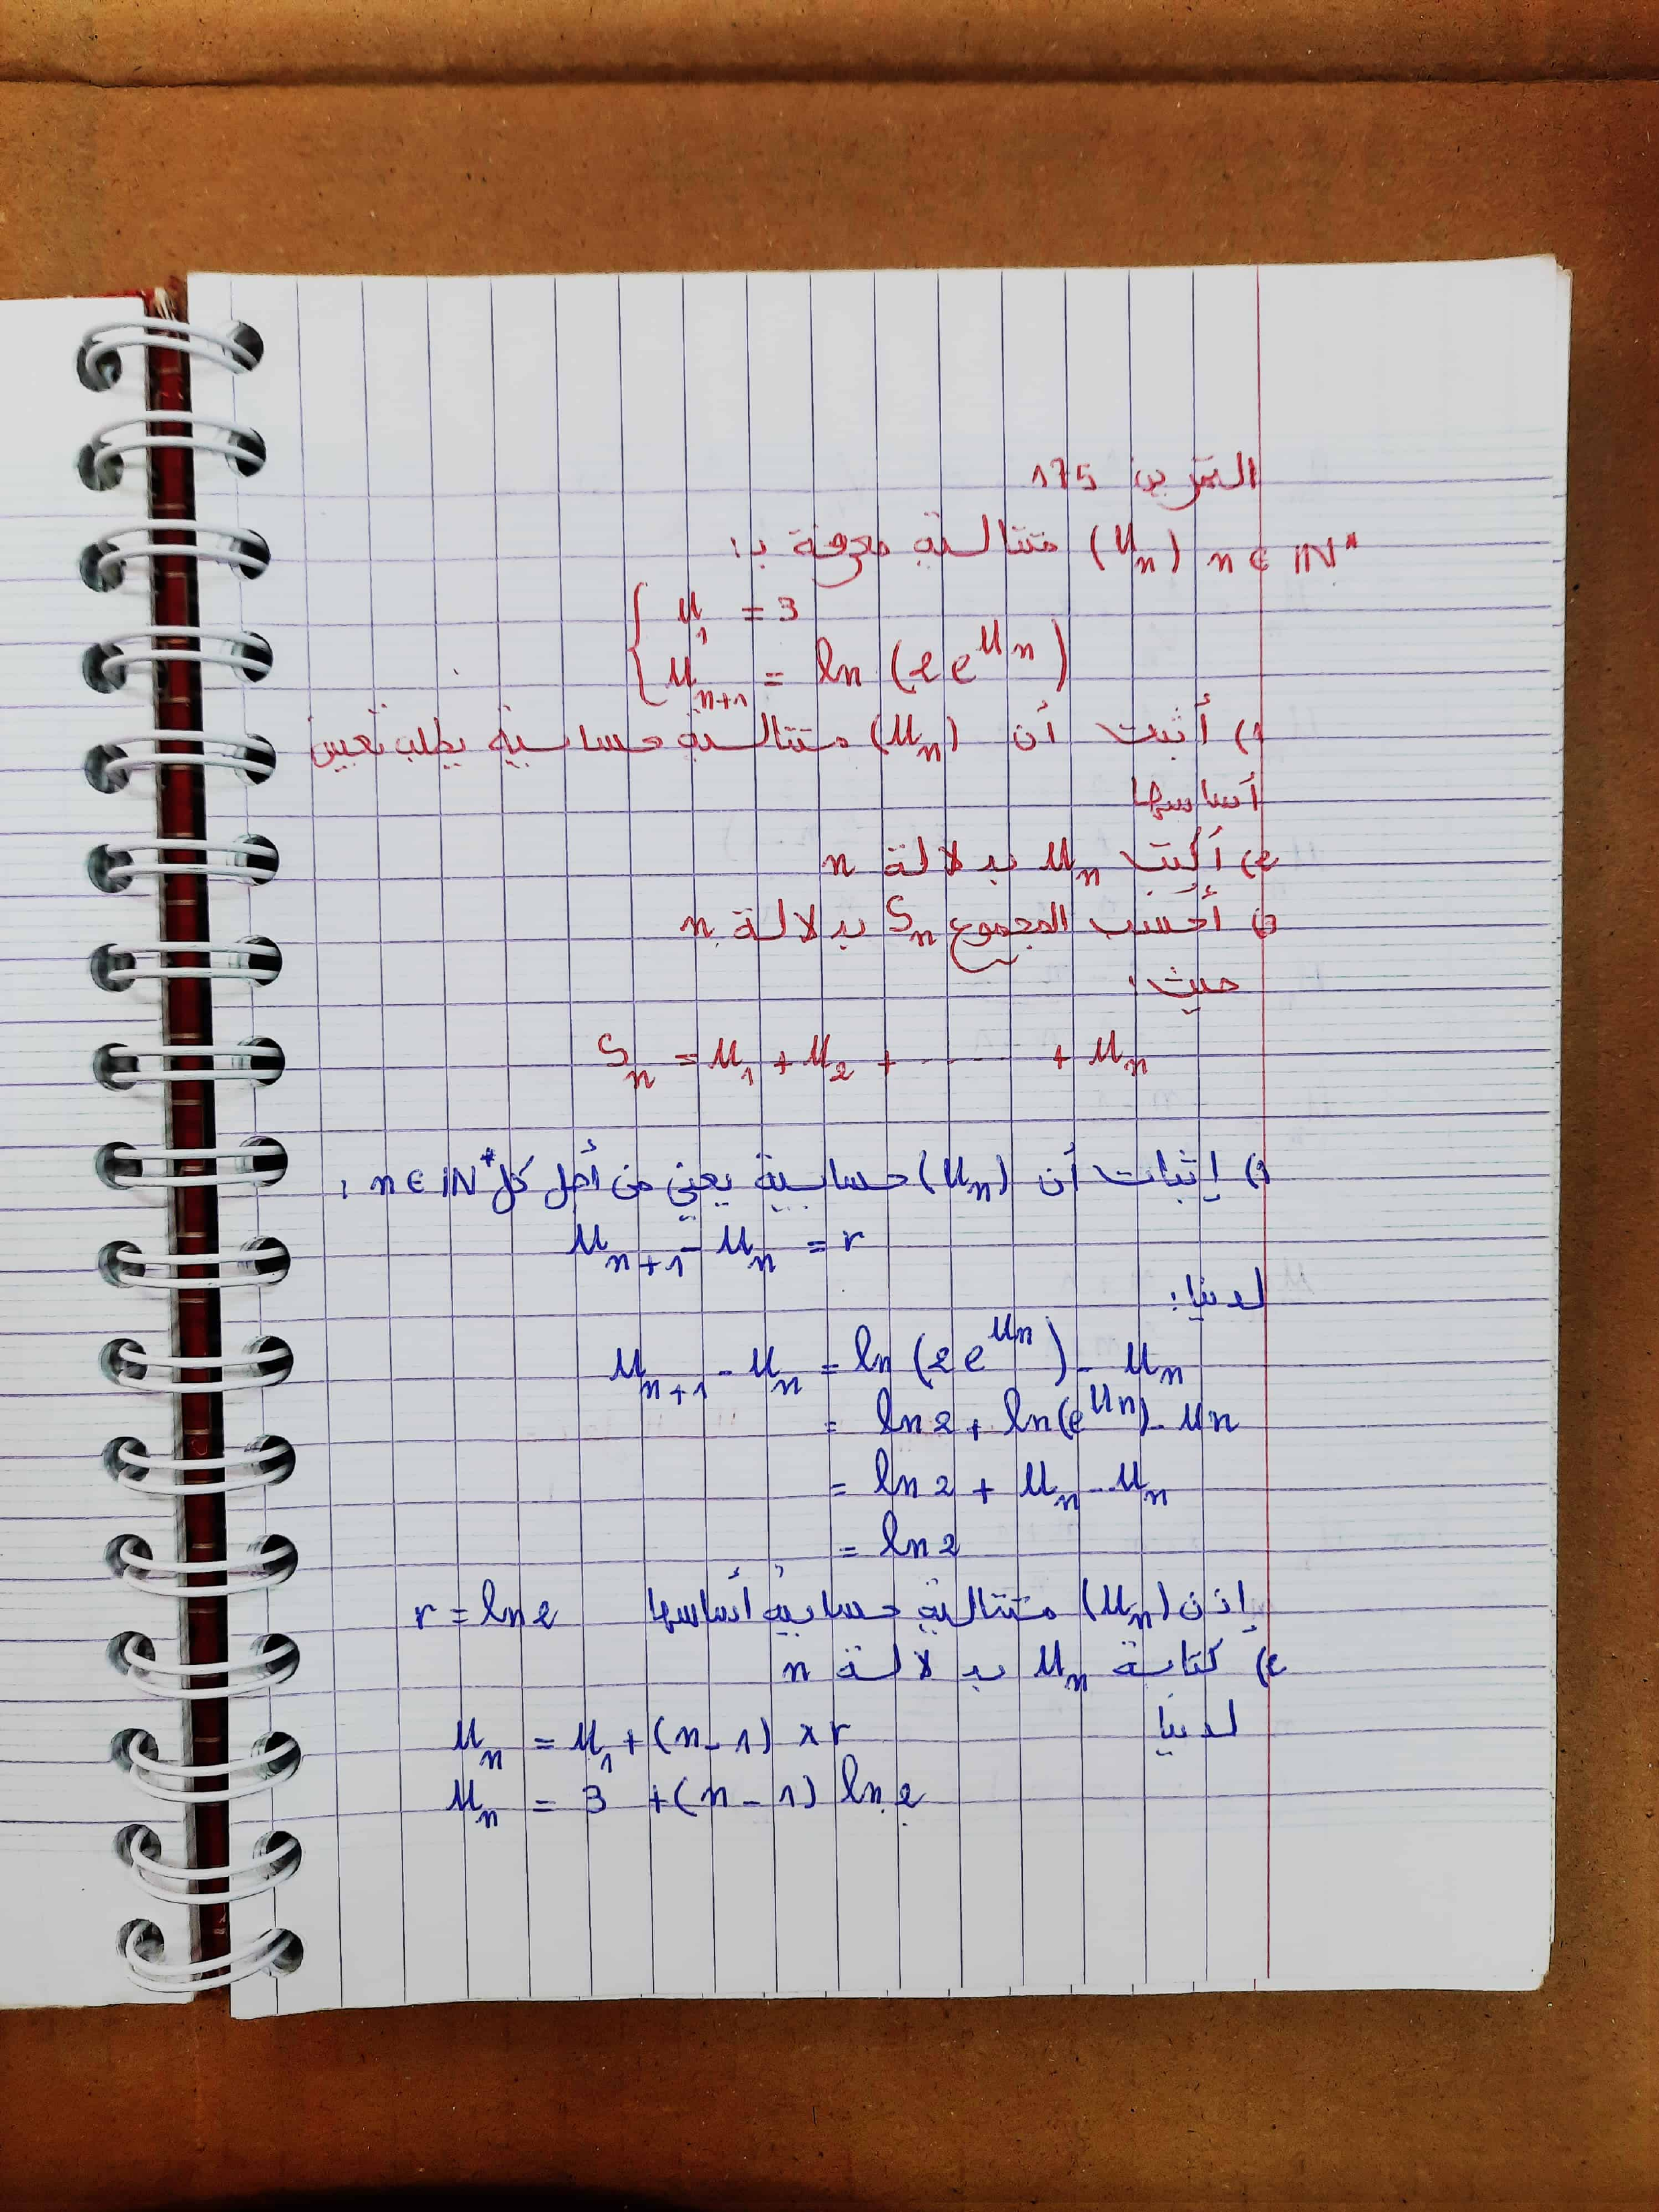 التمرين 175
(Un) n ∈ IN* متتالية معرفة بـ:
{ U1 = 3
{ Un+1 = ln (2e^Un)
1) أثبت أن (Un) متتالية حسابية يطلب تعيين
أساسها
2) أكتب Un بدلالة n
3) أحسب المجموع Sn بدلالة n
حيث:
Sn = U1 + U2 + ------ + Un
1) إثبات أن (Un) حسابية يعني من أجل كل n ∈ IN* :
Un+1 - Un = r
لدينا:
Un+1 - Un = ln (2e^Un) - Un
= ln2 + ln(e^Un) - Un
= ln2 + Un - Un
= ln2
إذن (Un) متتالية حسابية أساسها r = ln2
2) كتابة Un بدلالة n
لدينا Un = U1 + (n-1) × r
Un = 3 + (n-1) ln2